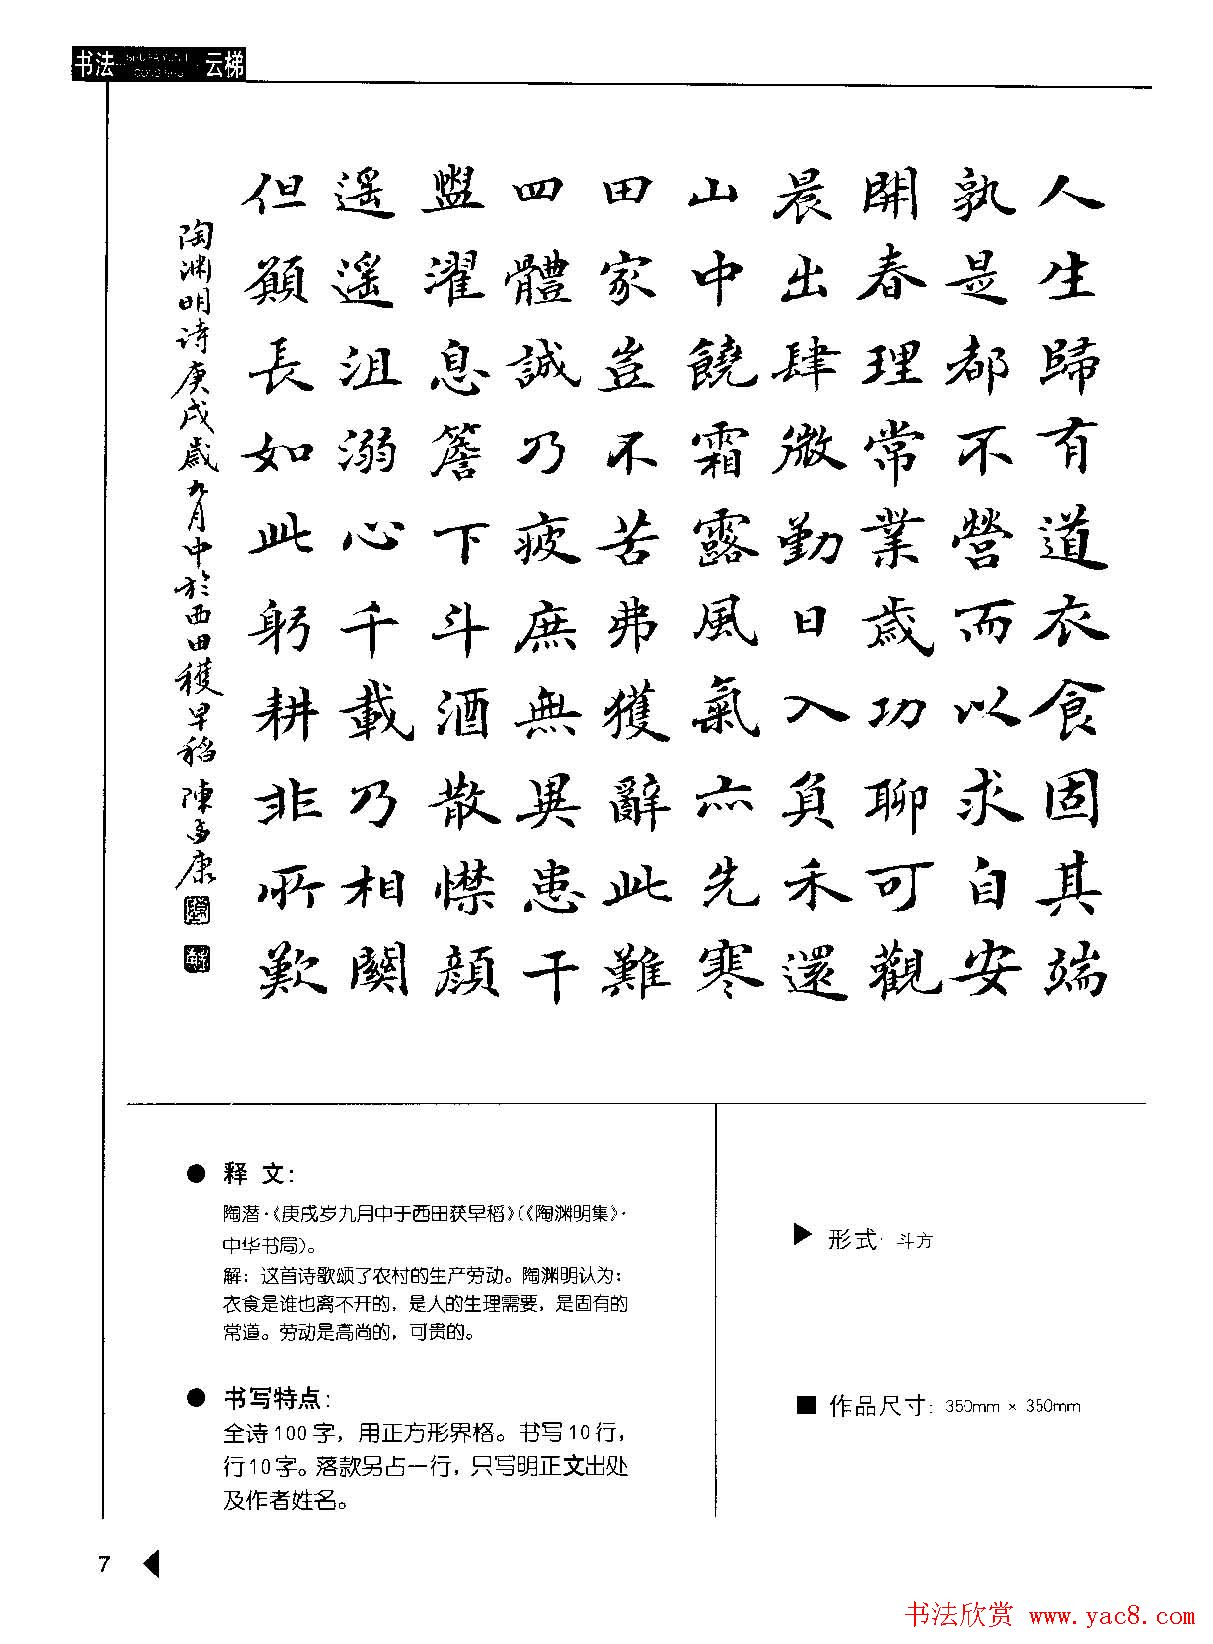 书法 云梯
人生歸有道衣食固其端
孰是都不營而以求自安
開春理常業歲功聊可觀
晨出肆微勤日入負禾還
山中饒霜露風氣亦先寒
田家豈不苦弗獲辭此難
四體誠乃疲庶無異患干
盥濯息簷下斗酒散襟顔
遥遥沮溺心千載乃相關
但願長如此躬耕非所歎
陶渊明诗庚戌歲九月中於西田穫早稻 陳
康
● 释 文：
陶潜·《庚戌岁九月中于西田获早稻》(《陶渊明集》·
中华书局)。
解：这首诗歌颂了农村的生产劳动。陶渊明认为：
衣食是谁也离不开的，是人的生理需要，是固有的
常道。劳动是高尚的，可贵的。
● 书写特点：
全诗100字，用正方形界格。书写10行，
行10字。落款另占一行，只写明正文出处
及作者姓名。
▶ 形式· 斗方
■ 作品尺寸：350mm × 350mm
7
书法欣赏 www.yac8.com